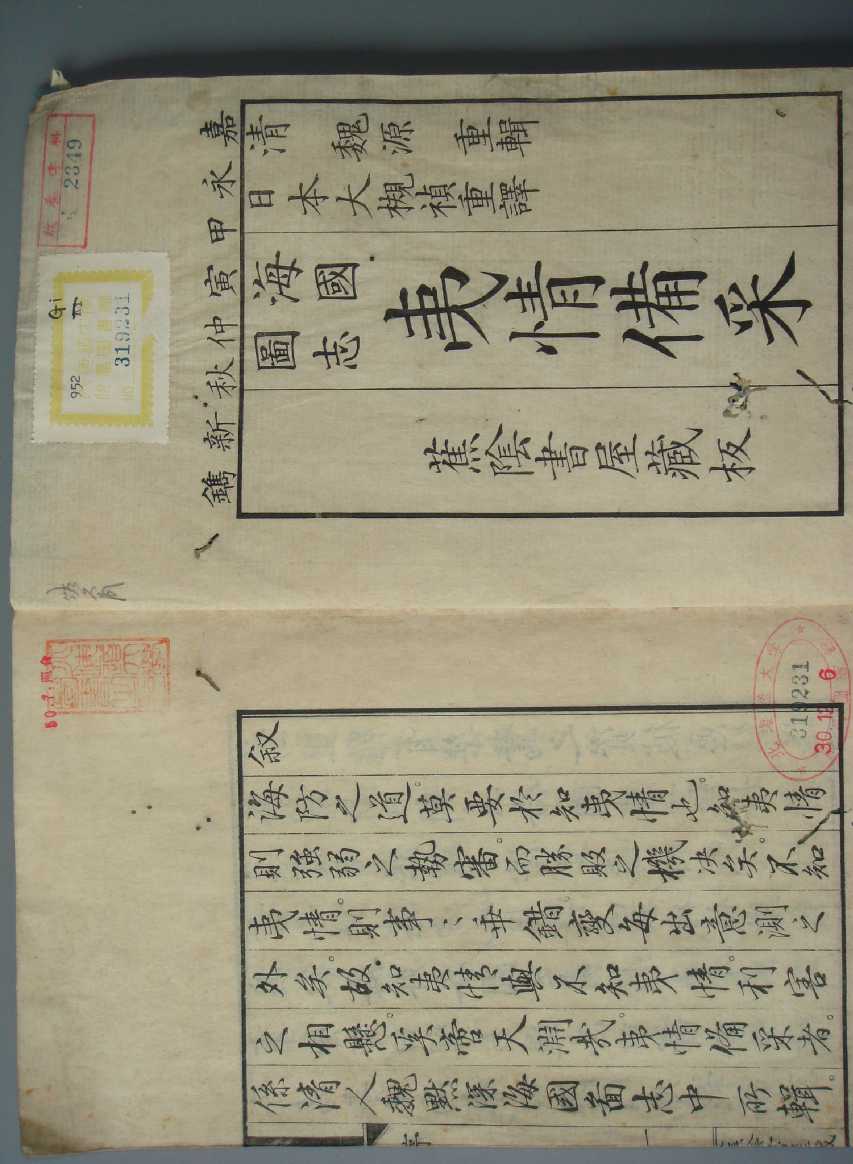 嘉永甲寅仲秋新鐫
清 魏源 重輯
日本大槻禎重譯
海國
圖志
夷情備采
蕉陰書屋藏板
叙
海防之道。莫要於知夷情也。知夷情
則強弱之埶審。而勝敗之機决矣。不知
夷情。則事〻乖錯。變每出意測之
外矣。故知夷情與不知夷情。利害
之相懸。奚啻天淵哉。夷情備采者。
係清人魏默深海國啚志中所輯。
2349
Gi
952
319231
319231
30.12.6